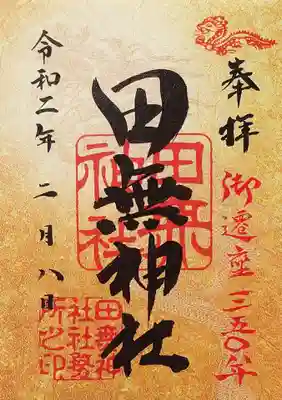 奉拝
御遷座三五〇年
田無神社
令和二年 二月八日
田無神社
田無神社社務所之印